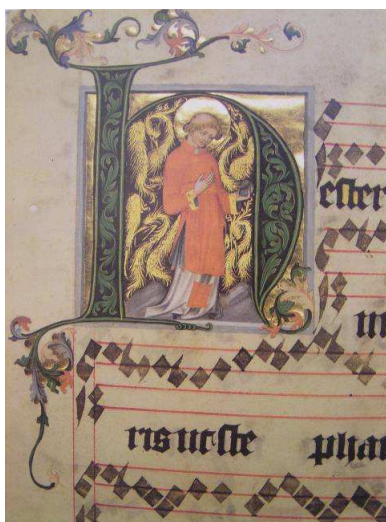 Hester
in
ris ut ste phan